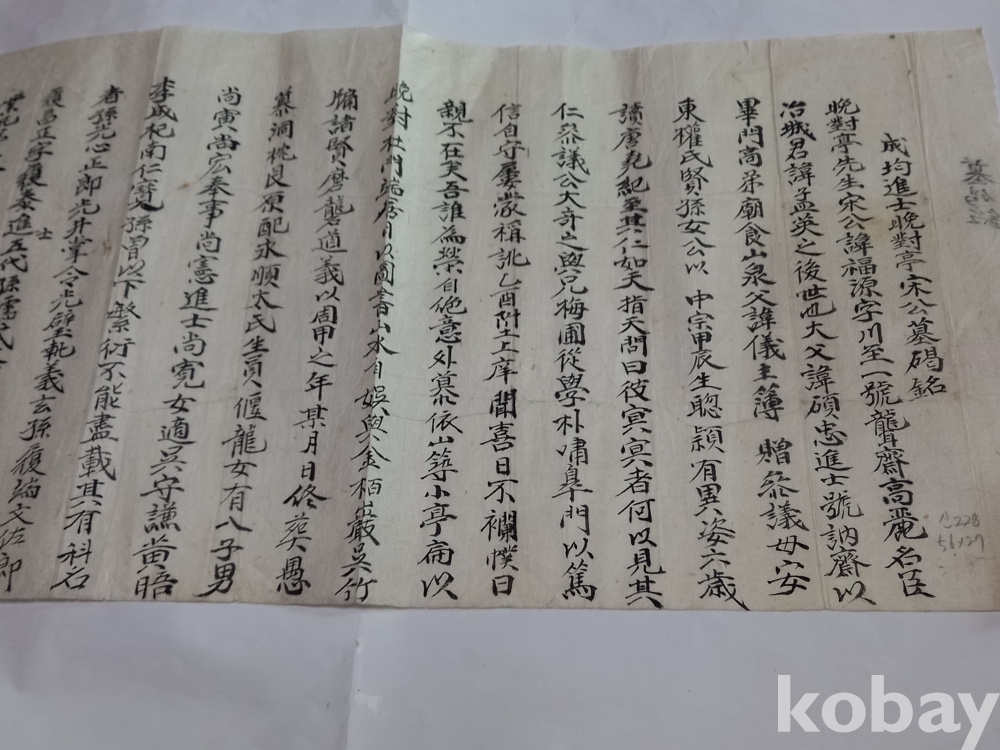 墓碣銘
成均進士晩對亭宋公墓碣銘
晩對亭先生宋公諱福源字川至一號聾齋高麗名臣
冶城君諱孟英之後世也大父諱碩忠進士號訥齋以
畢門高弟廟食山泉父諱儀主簿 贈參議母安
東權氏賢孫女公以 中宗甲辰生聰穎有異姿六歲
讀唐堯紀至其仁如天指天問曰彼冥冥者何以見其
仁叅議公大奇之與兄梅圃從學朴嘯皐門以篤
信自守屢蒙稱詡乙酉陞上庠聞喜日不襴幞曰
親不在矣吾誰為榮自絶意外慕依山築小亭扁以
晩對杜門端居日以圖書山水自娛與金栢巖吳竹
牖諸賢磨礱道義以周甲之年某月日終葬愚
慕洞枕艮原配永順太氏生員偃龍女有八子男
尚寅尚宏奉事尚憲進士尚寬女適吳守謙黃晤
李成杞南仁寶孫曾以下繁衍不能盡載其有科名
者孫光心正郎光升掌令光璧執義玄孫履端文佐郎
履昌正字履泰進士五代孫儒式文